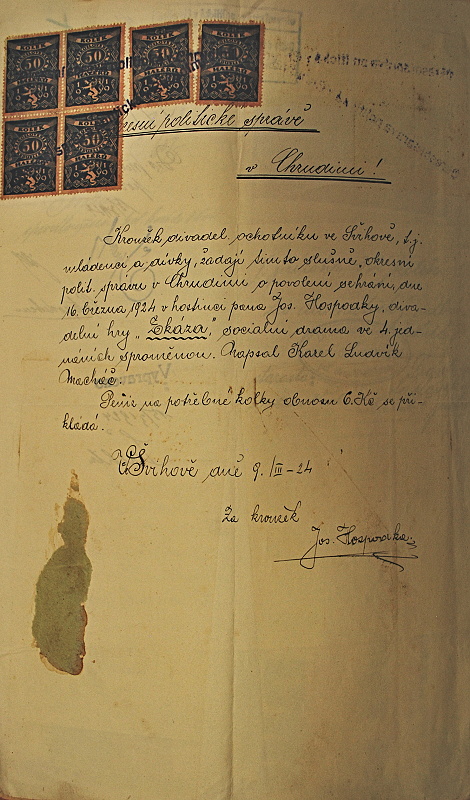 KOLEK
50
HALÉŘŮ
KOLEK
50
HALÉŘŮ
KOLEK
HALÉŘŮ
KOLEK
HALÉŘŮ
KOLEK
50
KOLEK
50
politické správě
v Chrudimi!
Kroužek divadel. ochotníku ve Švihově, t.j.
mládenci a dívky, žádají tímto slušně, okresní
polit. správu v Chrudimi o povolení sehrání, dne
16. března 1924 v hostinci pana Jos. Hospodky, diva-
delní hry „Zkáza" socialní drama ve 4. jed-
náních s proměnou. Napsal Karel Ludvík
Macháč.
Peníz na potřebné kolky obnosu 6. Kč se při-
kládá.
V Švihově dně 9./III-24
Za kroužek
Jos. Hospodka.